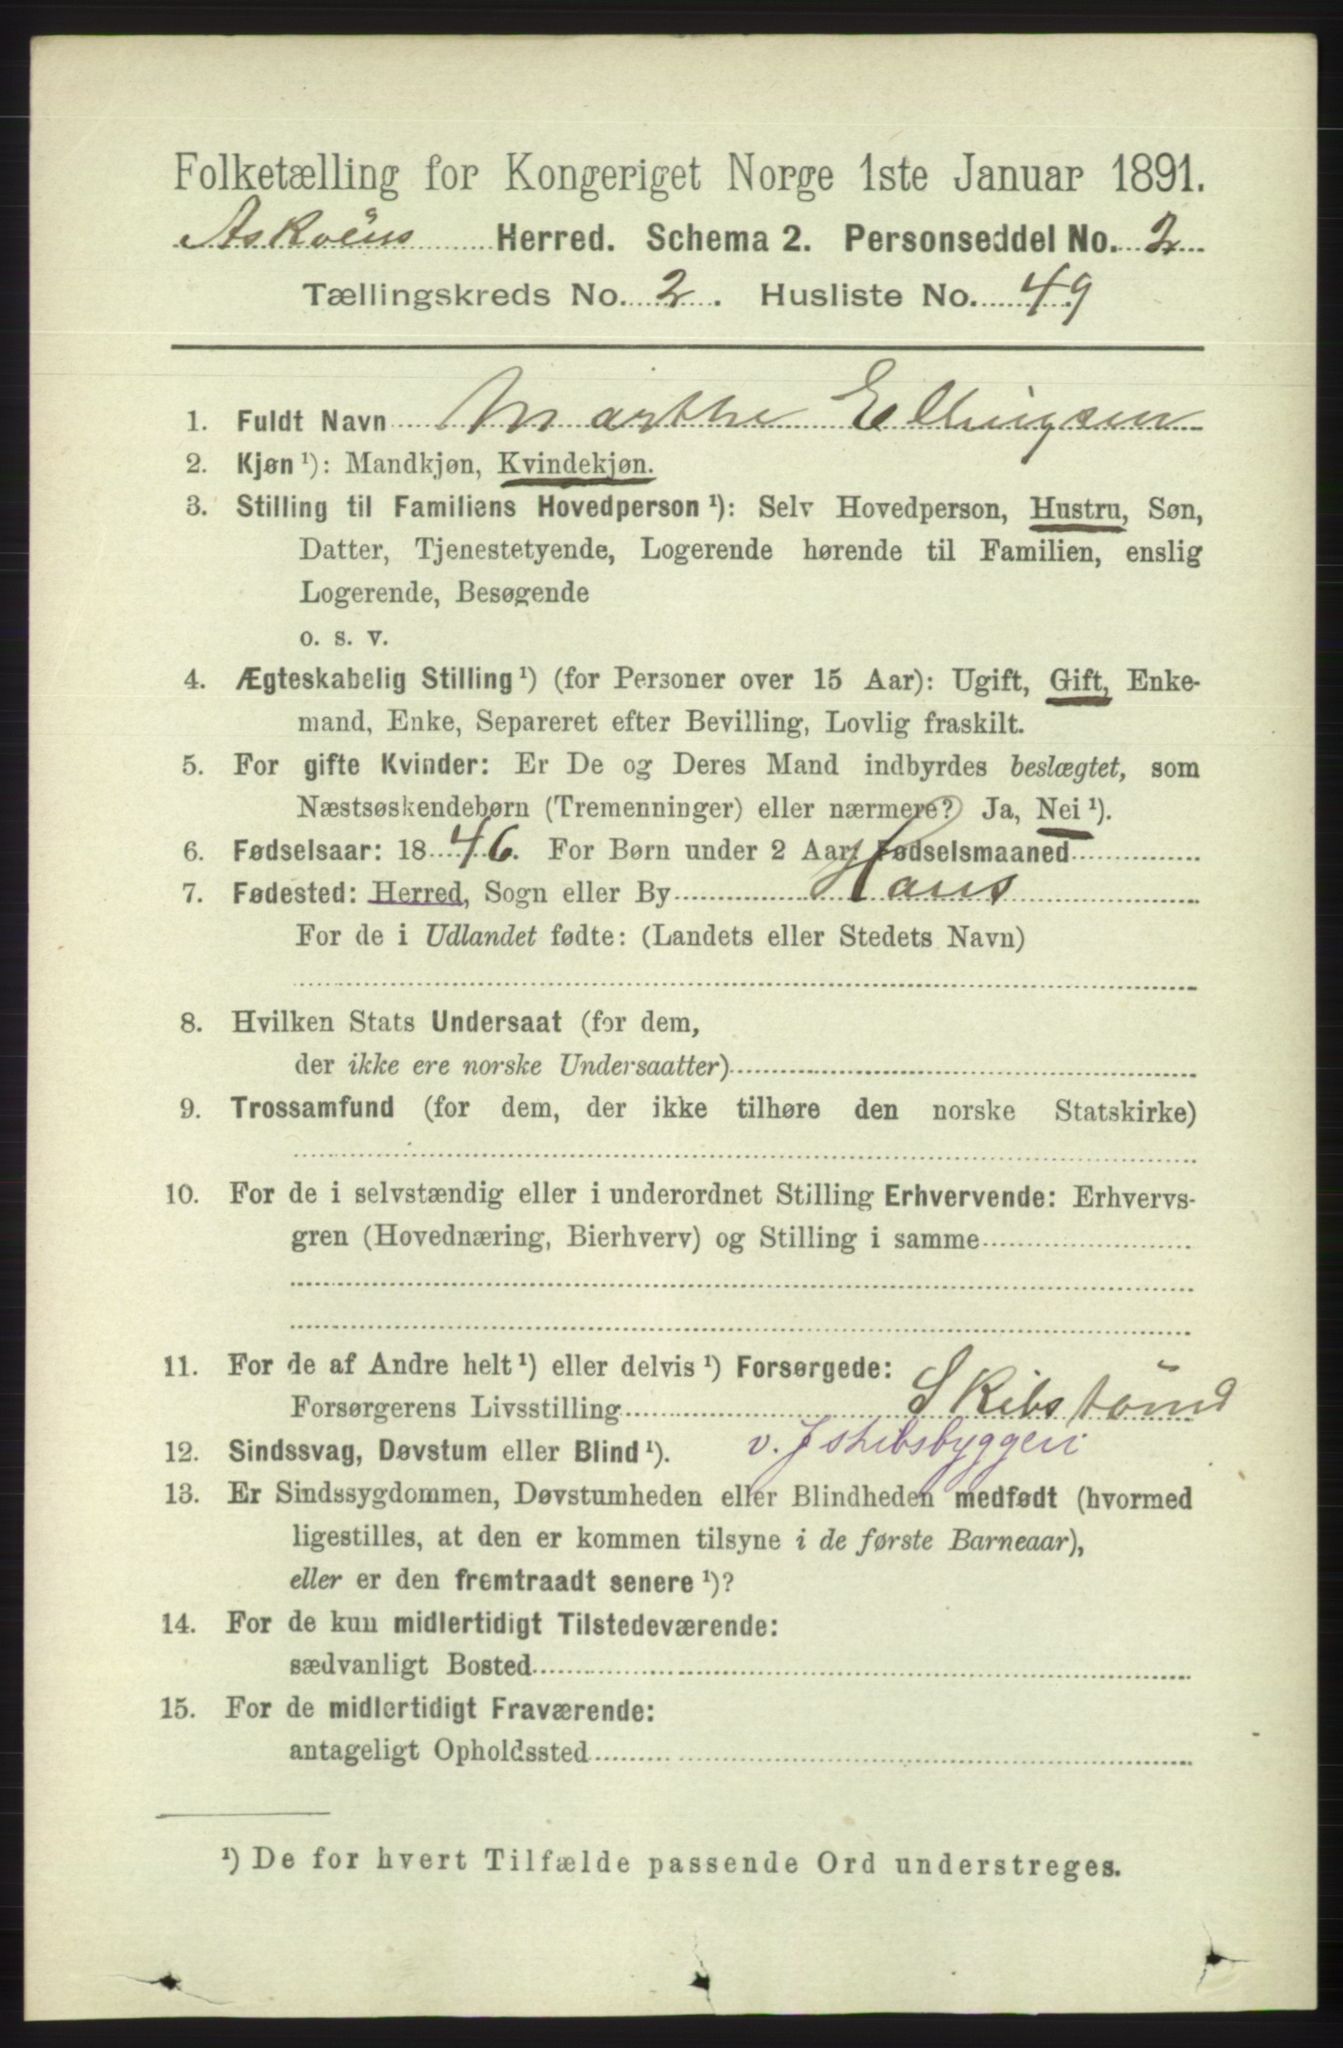 Folketælling for Kongeriget Norge 1ste Januar 1891.
Askvöens Herred. Schema 2. Personseddel No. 2
Tællingskreds No. 2. Husliste No. 49
1. Fuldt Navn Marthe Ellingsen
2. Kjøn ¹): Mandkjøn, Kvindekjøn.
3. Stilling til Familiens Hovedperson ¹): Selv Hovedperson, Hustru, Søn,
Datter, Tjenestetyende, Logerende hørende til Familien, enslig
Logerende, Besøgende
o. s. v.
4. Ægteskabelig Stilling ¹) (for Personer over 15 Aar): Ugift, Gift, Enke-
mand, Enke, Separeret efter Bevilling, Lovlig fraskilt.
5. For gifte Kvinder: Er De og Deres Mand indbyrdes beslægtet, som
Næstsøskendebørn (Tremenninger) eller nærmere? Ja, Nei ¹).
6. Fødselsaar: 1846. For Børn under 2 Aar, Fødselsmaaned
7. Fødested: Herred, Sogn eller By Haus
For de i Udlandet fødte: (Landets eller Stedets Navn)
8. Hvilken Stats Undersaat (for dem,
der ikke ere norske Undersaatter)
9. Trossamfund (for dem, der ikke tilhøre den norske Statskirke)
10. For de i selvstændig eller i underordnet Stilling Erhvervende: Erhvervs-
gren (Hovednæring, Bierhverv) og Stilling i samme
11. For de af Andre helt ¹) eller delvis ¹) Forsørgede:
Forsørgerens Livsstilling Skibstömd
12. Sindssvag, Døvstum eller Blind ¹). v. Jskibsbyggeri
13. Er Sindssygdommen, Døvstumheden eller Blindheden medfødt (hvormed
ligestilles, at den er kommen tilsyne i de første Barneaar),
eller er den fremtraadt senere ¹)?
14. For de kun midlertidigt Tilstedeværende:
sædvanligt Bosted
15. For de midlertidigt Fraværende:
antageligt Opholdssted
¹) De for hvert Tilfælde passende Ord understreges.